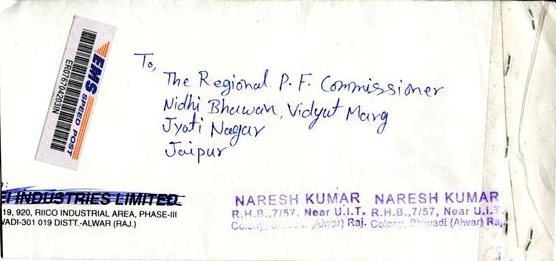 To,
The Regional P. F. Commissioner
Nidhi Bhawan, Vidyut Marg
Jyoti Nagar
Jaipur
EMS SPEED POST
INDUSTRIES LIMITED
19, 920, RIICO INDUSTRIAL AREA, PHASE-III
WADI-301 019 DISTT.-ALWAR (RAJ.)
NARESH KUMAR NARESH KUMAR
R.H.B.,7/57, Near U.I.T. R.H.B.,7/57, Near U.I.T.
Colony, (Alwar) Raj. Colony, Bhiwadi (Alwar) Raj